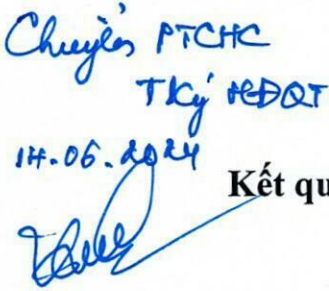 Chuyển PTCHC
TKý HĐQT
14.06.2024
Kết qu